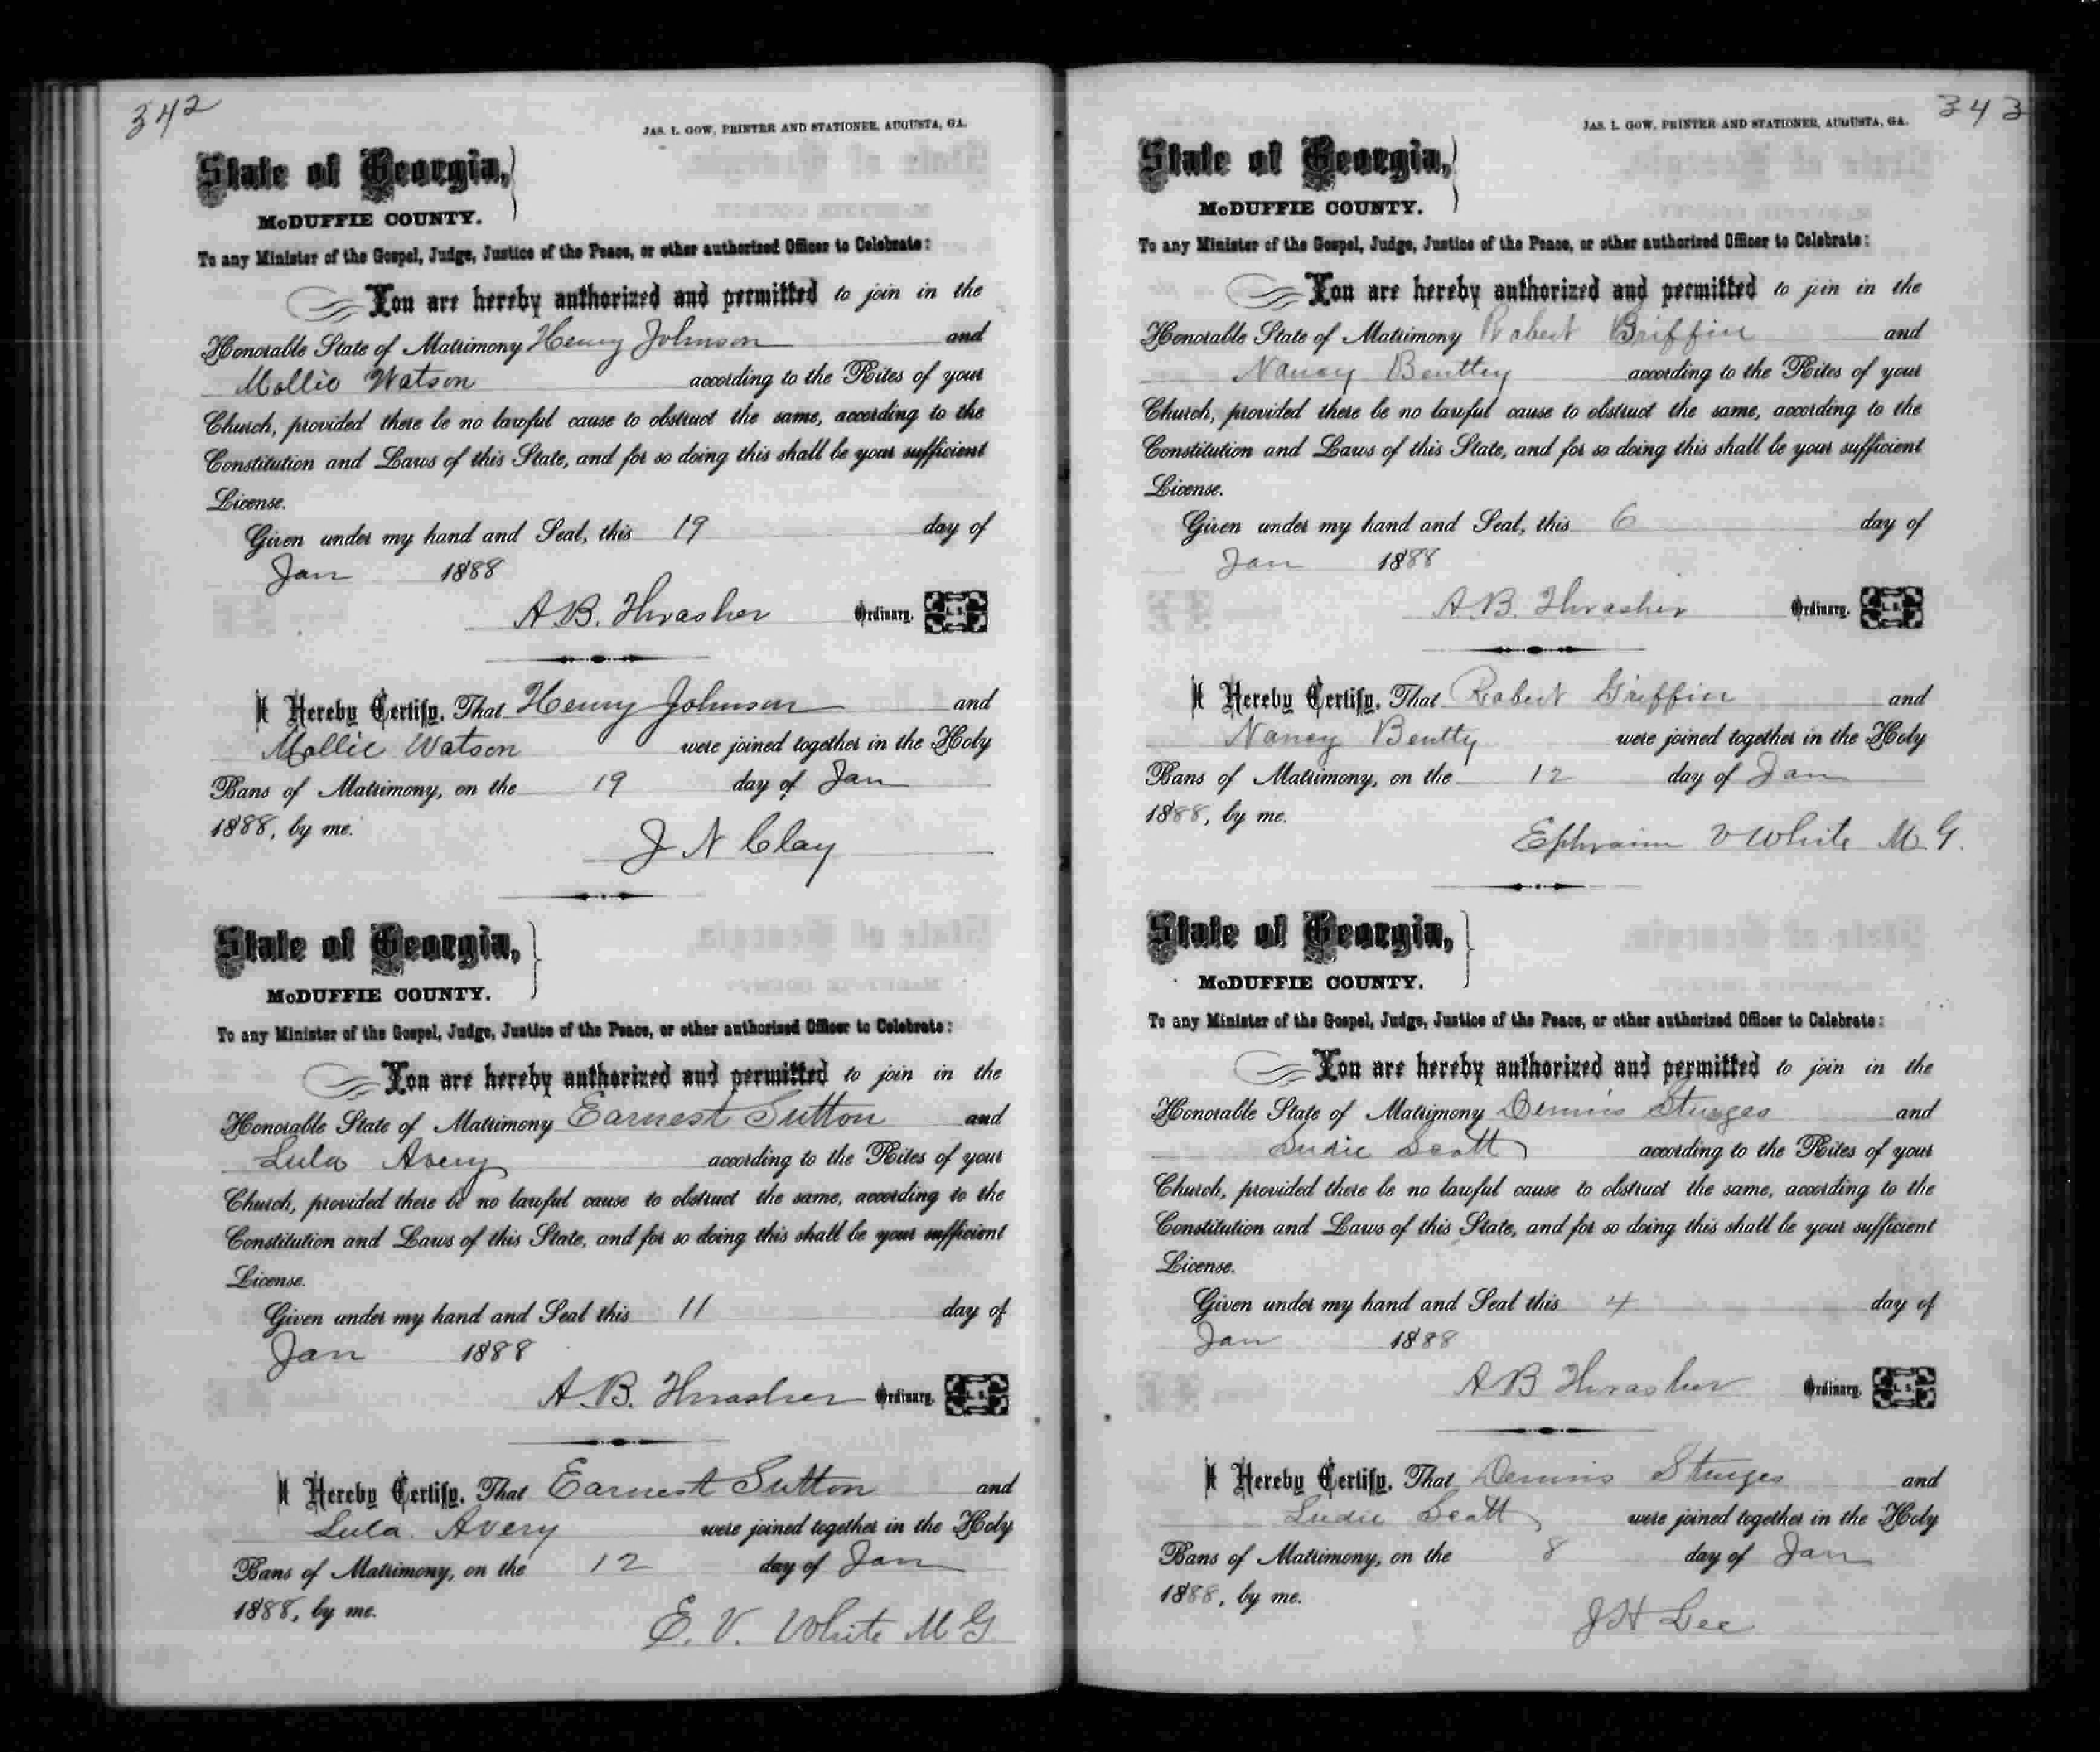 342
JAS. L. GOW, PRINTER AND STATIONER, AUGUSTA, GA.
State of Georgia,
McDUFFIE COUNTY.
To any Minister of the Gospel, Judge, Justice of the Peace, or other authorized Officer to Celebrate:
You are hereby authorized and permitted to join in the
Honorable State of Matrimony Henry Johnson and
Mollie Watson according to the Rites of your
Church, provided there be no lawful cause to obstruct the same, according to the
Constitution and Laws of this State, and for so doing this shall be your sufficient
License.
Given under my hand and Seal, this 19 day of
Jan 1888
A.B. Thrasher Ordinary. L. S.
I Hereby Certify, That Henry Johnson and
Mollie Watson were joined together in the Holy
Bans of Matrimony, on the 19 day of Jan
1888, by me.
J N Clay
State of Georgia,
McDUFFIE COUNTY.
To any Minister of the Gospel, Judge, Justice of the Peace, or other authorized Officer to Celebrate:
You are hereby authorized and permitted to join in the
Honorable State of Matrimony Earnest Sutton and
Lula Avery according to the Rites of your
Church, provided there be no lawful cause to obstruct the same, according to the
Constitution and Laws of this State, and for so doing this shall be your sufficient
License.
Given under my hand and Seal this 11 day of
Jan 1888
A.B. Thrasher Ordinary. L. S.
I Hereby Certify, That Earnest Sutton and
Lula Avery were joined together in the Holy
Bans of Matrimony, on the 12 day of Jan
1888, by me.
E. V. White M G
343
JAS. L. GOW, PRINTER AND STATIONER, AUGUSTA, GA.
State of Georgia,
McDUFFIE COUNTY.
To any Minister of the Gospel, Judge, Justice of the Peace, or other authorized Officer to Celebrate:
You are hereby authorized and permitted to join in the
Honorable State of Matrimony Robert Griffin and
Nancy Benttey according to the Rites of your
Church, provided there be no lawful cause to obstruct the same, according to the
Constitution and Laws of this State, and for so doing this shall be your sufficient
License.
Given under my hand and Seal, this 6 day of
Jan 1888
A.B. Thrasher Ordinary. L. S.
I Hereby Certify, That Robert Griffin and
Nancy Bentty were joined together in the Holy
Bans of Matrimony, on the 12 day of Jan
1888, by me.
Ephraim V White M.G.
State of Georgia,
McDUFFIE COUNTY.
To any Minister of the Gospel, Judge, Justice of the Peace, or other authorized Officer to Celebrate:
You are hereby authorized and permitted to join in the
Honorable State of Matrimony Dennis Sturges and
Sudie Scott according to the Rites of your
Church, provided there be no lawful cause to obstruct the same, according to the
Constitution and Laws of this State, and for so doing this shall be your sufficient
License.
Given under my hand and Seal this 4 day of
Jan 1888
A B Thrasher Ordinary. L. S.
I Hereby Certify, That Dennis Sturges and
Sudie Scott were joined together in the Holy
Bans of Matrimony, on the 8 day of Jan
1888, by me.
J H Lee